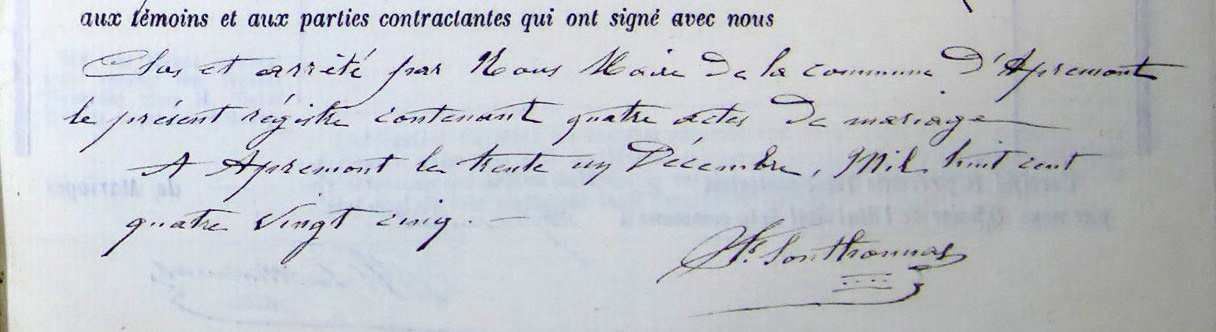 aux témoins et aux parties contractantes qui ont signé avec nous
Clos et arrêté par Nous Maire de la commune d'Apremont
le présent régistre contenant quatre actes de mariage
A Apremont le trente un Décembre, Mil huit cent
quatre vingt cinq. —
Sonthonnas